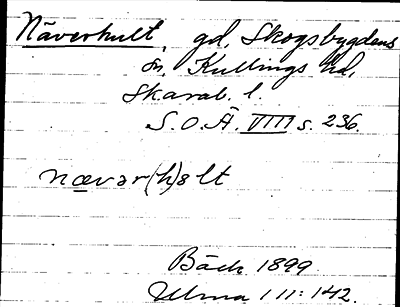 Näverhult, gd, Skogsbygdens
sn, Kullings hd,
Skarab. l.
S.O.Ä. VIII s. 236.
nævər(h)əlt
Bäck 1899
Ulma 111:142.